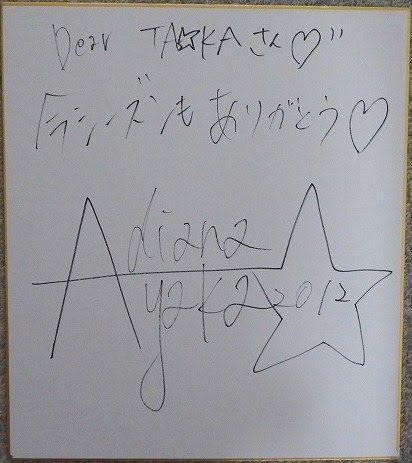 Dear TA☆KAさん♡"
今シーズンもありがとう♡
Adiana
Ayaka 2012